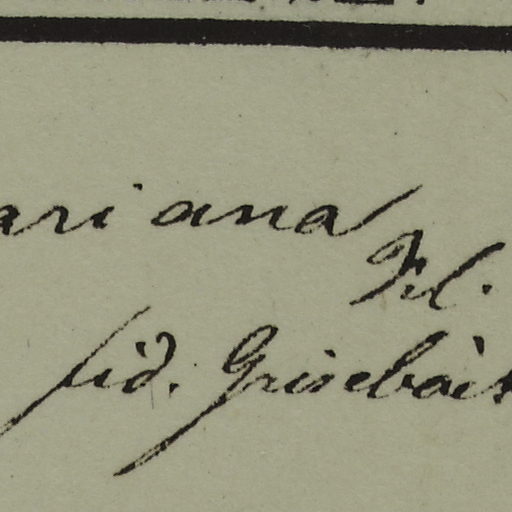 ariana
Fl.
fid. Grisebach